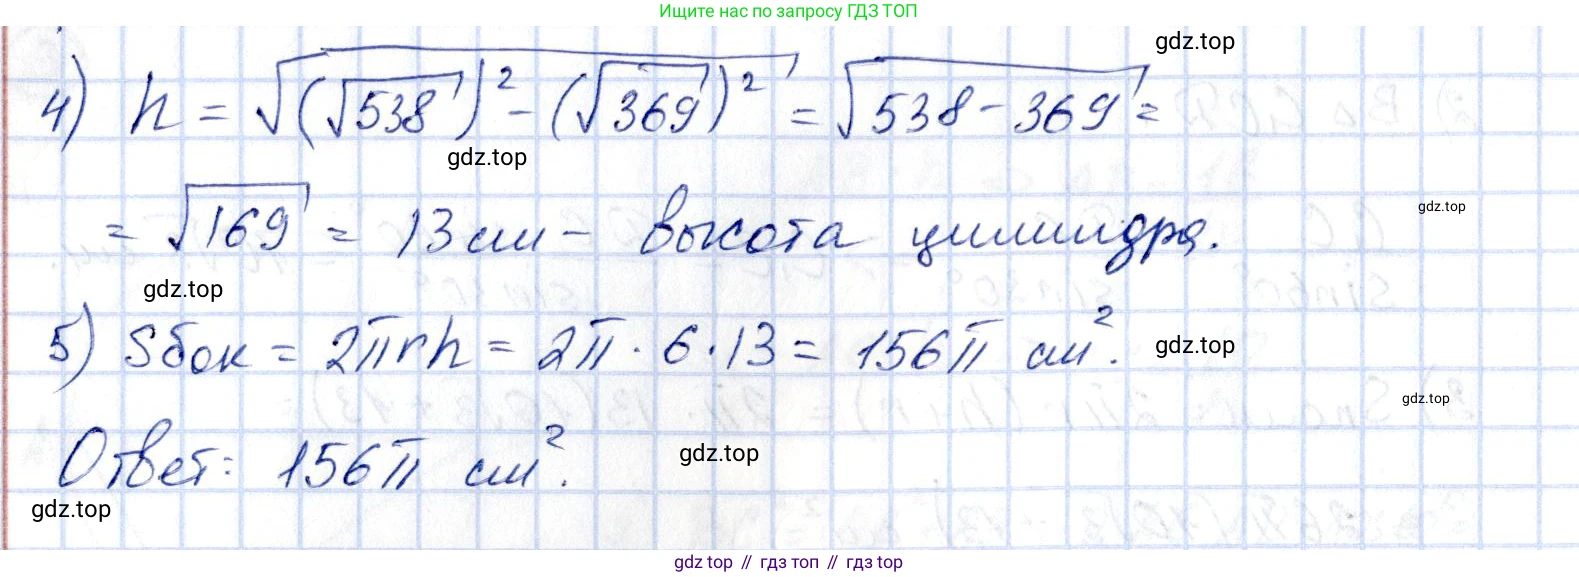 Ищите нас по запросу ГДЗ ТОП
gdz.top
4) h = √((√538)² - (√369)²) = √(538 - 369) =
gdz.top
= √169 = 13 см - высота цилиндра.
gdz.top
gdz.top
5) Sбок = 2πrh = 2π · 6 · 13 = 156π см².
gdz.top
gdz.top
Ответ: 156π см².
gdz.top
gdz.top
gdz top // гдз топ // гдз top